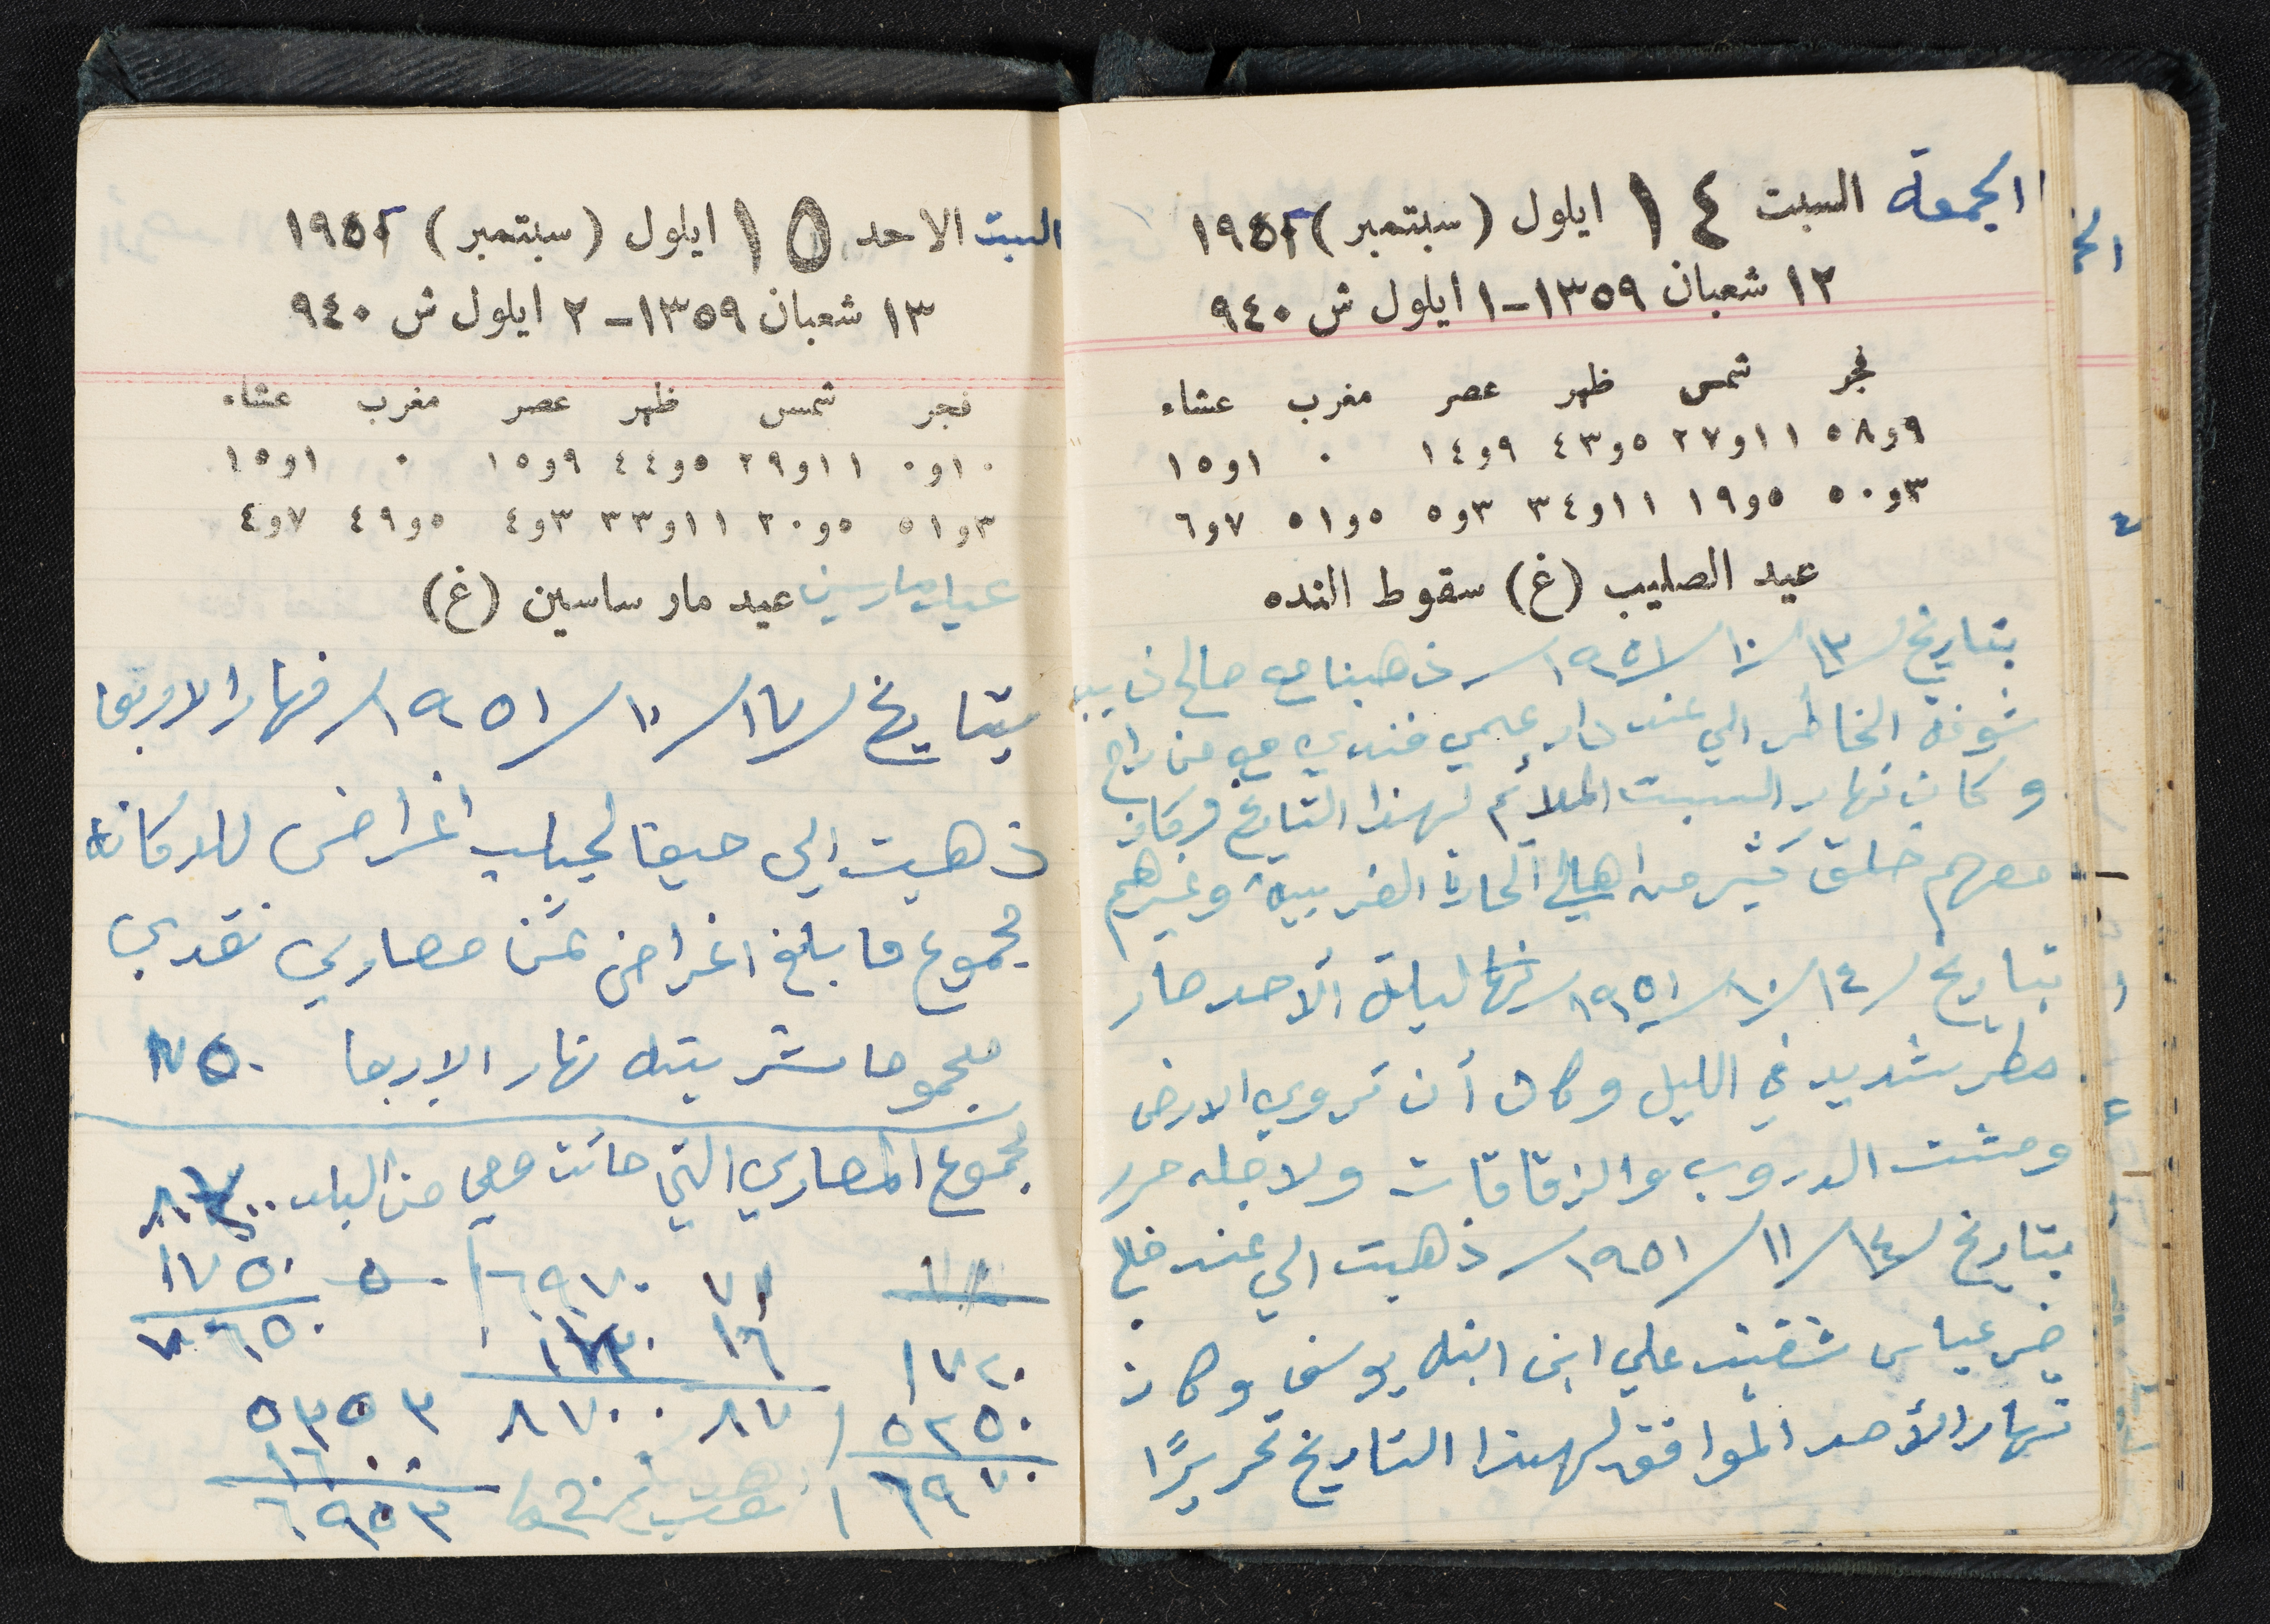 الجمعة السبت ١٤ ايلول (سبتمبر) ١٩٥١
١٢ شعبان ١٣٥٩ - ١ ايلول ش ٩٤٠
فجر شمس ظهر عصر مغرب عشاء
٩و٥٨ ١١و٢٧ ٥و٤٣ ٩و١٤ ٠ ١و١٥
٣و٥٠ ٥و١٩ ١١و٣٤ ٣و٥ ٥و٥١ ٧و٦
عيد الصليب (غ) سقوط النده
بتاريخ ١٣/١٠/١٩٥١ ذهبنا مع صالح ذيب
شوفة الخاطر الي عند دار عمي فندي مع من راح
وكان نهار السبت الملائم لهذا التاريخ وكان
معهم خلق كثير من اهالي الحارة الغربية وغيرهم
بتاريخ ١٤/١٠/١٩٥١ نهار ليلة الأحد صار
مطر شديد في الليل وكان أن تروي الارض
ومشت الدروب والزقاقات ولاجله حرر
بتاريخ ١٤/١١/١٩٥١ ذهبت الي عند
عباس شقبت علي ابن ابنه يوسف وكان
نهار الأحد الموافق لهذا التاريخ تحريرًا
السبت الاحد ١٥ ايلول (سبتمبر) ١٩٥١
١٣ شعبان ١٣٥٩ - ٢ ايلول ش ٩٤٠
فجر شمس ظهر عصر مغرب عشاء
١٠و٠ ١١و٢٩ ٥و٤٤ ٩و١٥ ٠ ١و١٥
٣و٥١ ٥و٢٠ ١١و٣٣ ٣و٤ ٥و٤٩ ٧و٤
عيد مار ساسين (غ)
بتاريخ ١٧/١٠/١٩٥١ نهار الاربعا
ذهبت الي حيفا لجياب اغراض للدكانة
مجموع ما بلغ اغراض ثمن مصاري نقدي
مشريته نهار الاربعا ٧٥٠
مجموع المصاري التي كانت معي من البلد
٧١ ٦٩٧٠ ٥٠ ١٧٥٠
١٧٢٠ ١٦ ١٧٣٠ ٧٦٥٠
٥٢٥٠ ٨٧ ٨٧٠٠ ٥٣٥٣
٦٩٧٠ ١٦٠٠
٦٩٥٣